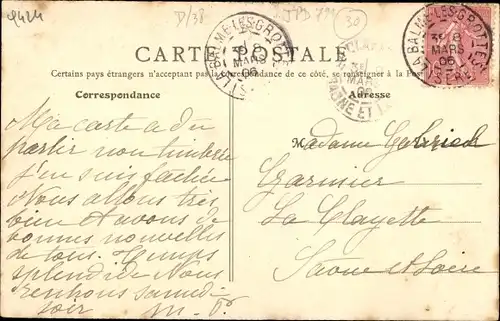 9424
D/38
JPD 791
30
LA BALME-LES-GROTTES
8
MARS
06
(ISÈRE)
LA BALME-LES-GROTTES
8
MARS
06
(ISÈRE)
LA CLAYETTE
MARS
06
SAONE ET L
CARTE POSTALE
Certains pays étrangers n'acceptant pas la Correspondance de ce côté, se renseigner à la Poste
Correspondance
Adresse
Ma carte a du
partir non timbrée
j'en suis fachée
Nous allons très
bien & avons de
bonnes nouvelles
de tous. Temps
splendide Nous
rentrons samedi
soir
M
Madame Gabriel
Garnier
La Clayette
Saône et Loire